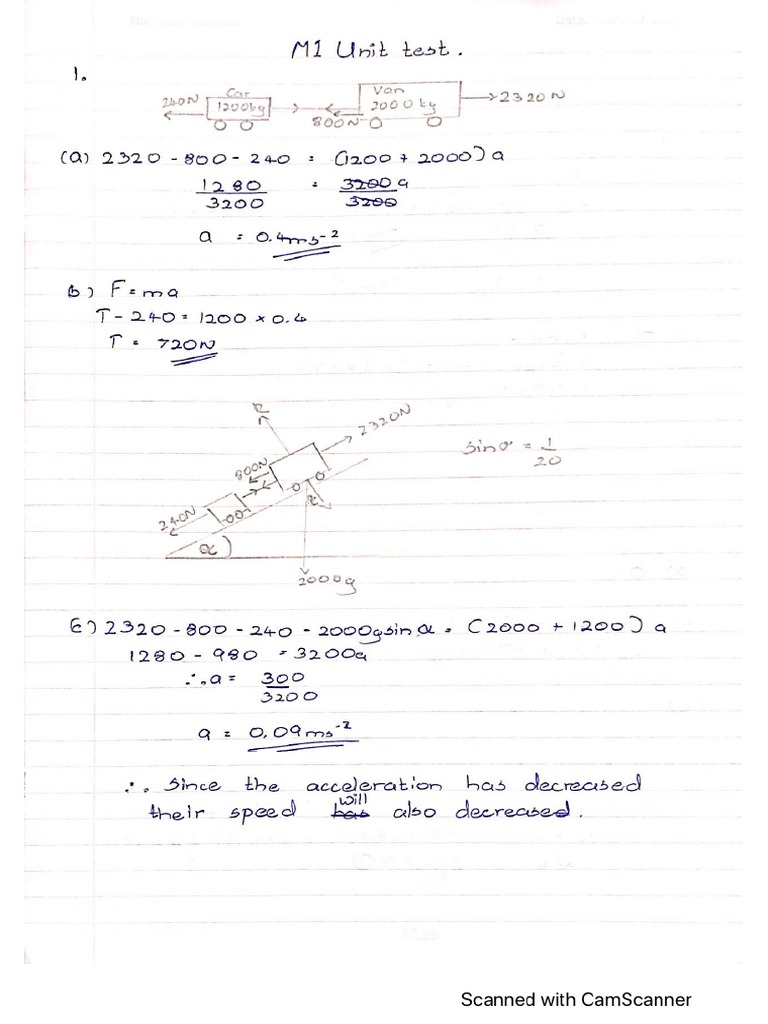 M1 Unit test.
1.
Car
Van
240N
1200kg
2000kg
2320N
800N
(a) 2320 - 800 - 240 = (1200 + 2000) a
1280 = 3200a
3200 3200
a = 0.4ms⁻²
b) F = ma
T - 240 = 1200 × 0.4
T = 720N
R
2320N
800N
sinα = 1
20
α
240N
α
2000g
c) 2320 - 800 - 240 - 2000gsinα = (2000 + 1200) a
1280 - 980 = 3200a
∴ a = 300
3200
a = 0.09ms⁻²
∴ Since the acceleration has decreased
will
their speed has also decreased.
Scanned with CamScanner